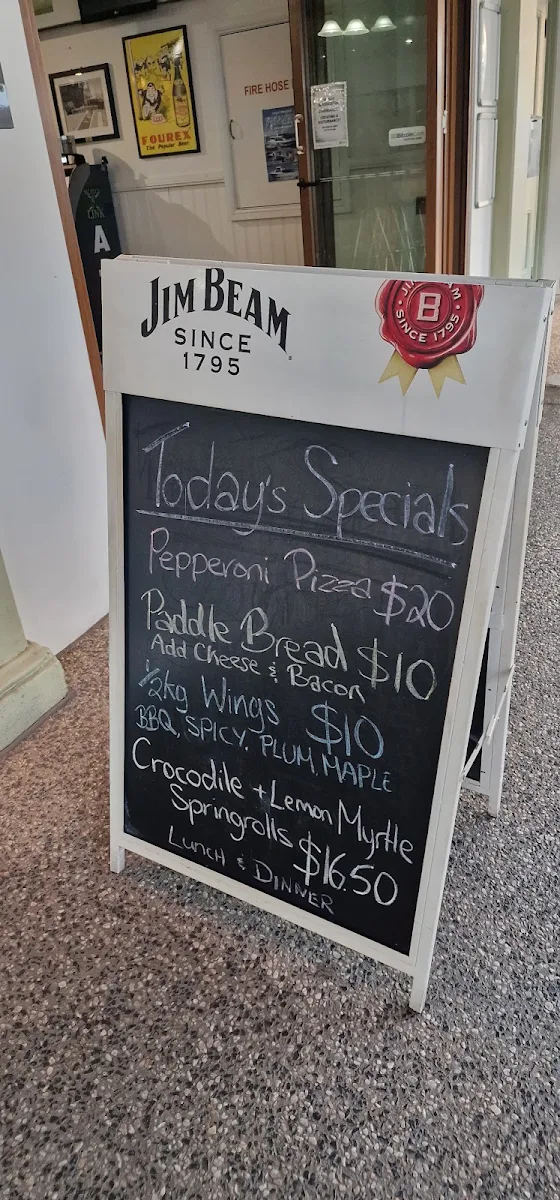 FOUREX
The Popular Beer
FIRE HOSE
LINK
A
JIM BEAM
SINCE
1795
JIM BEAM
B
SINCE 1795
Today's Specials
Pepperoni Pizza $20
Paddle Bread $10
Add Cheese & Bacon
1/2kg Wings $10
BBQ, SPICY, PLUM, MAPLE
Crocodile + Lemon Myrtle
Springrolls $16.50
LUNCH & DINNER